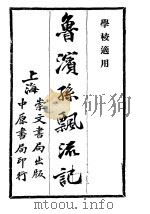 學校適用
魯濱孫飄流記
上海
崇文書局出版
中原書局印行
www.mtoou.info